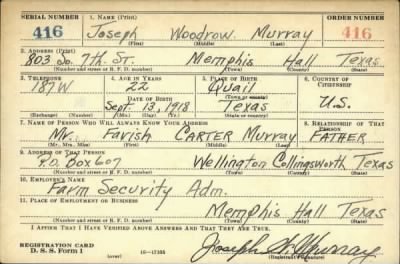 SERIAL NUMBER 1. NAME (Print) ORDER NUMBER
416 Joseph Woodrow Murray 416
(First) (Middle) (Last)
2. ADDRESS (Print)
803 So. 7th. St. Memphis Hall Texas
(Number and street or R. F. D. number) (Town) (County) (State)
3. TELEPHONE 4. AGE IN YEARS 5. PLACE OF BIRTH 6. COUNTRY OF CITIZENSHIP
187W 22 Quail
DATE OF BIRTH (Town or county)
Sept. 13, 1918 Texas U.S.
(Exchange) (Number) (Mo.) (Day) (Yr.) (State or country)
7. NAME OF PERSON WHO WILL ALWAYS KNOW YOUR ADDRESS 8. RELATIONSHIP OF THAT PERSON
Mr. Farish CARTER Murray FATHER
(Mr., Mrs., Miss) (First) (Middle) (Last)
9. ADDRESS OF THAT PERSON
P.O. Box 607 Wellington Collingsworth Texas
(Number and street or R. F. D. number) (Town) (County) (State)
10. EMPLOYER'S NAME
Farm Security Adm.
11. PLACE OF EMPLOYMENT OR BUSINESS
Memphis Hall Texas
(Number and street or R. F. D. number) (Town) (County) (State)
I AFFIRM THAT I HAVE VERIFIED ABOVE ANSWERS AND THAT THEY ARE TRUE.
REGISTRATION CARD
D. S. S. Form 1 (over) 16-17105 Joseph W. Murray
(Registrant's signature)